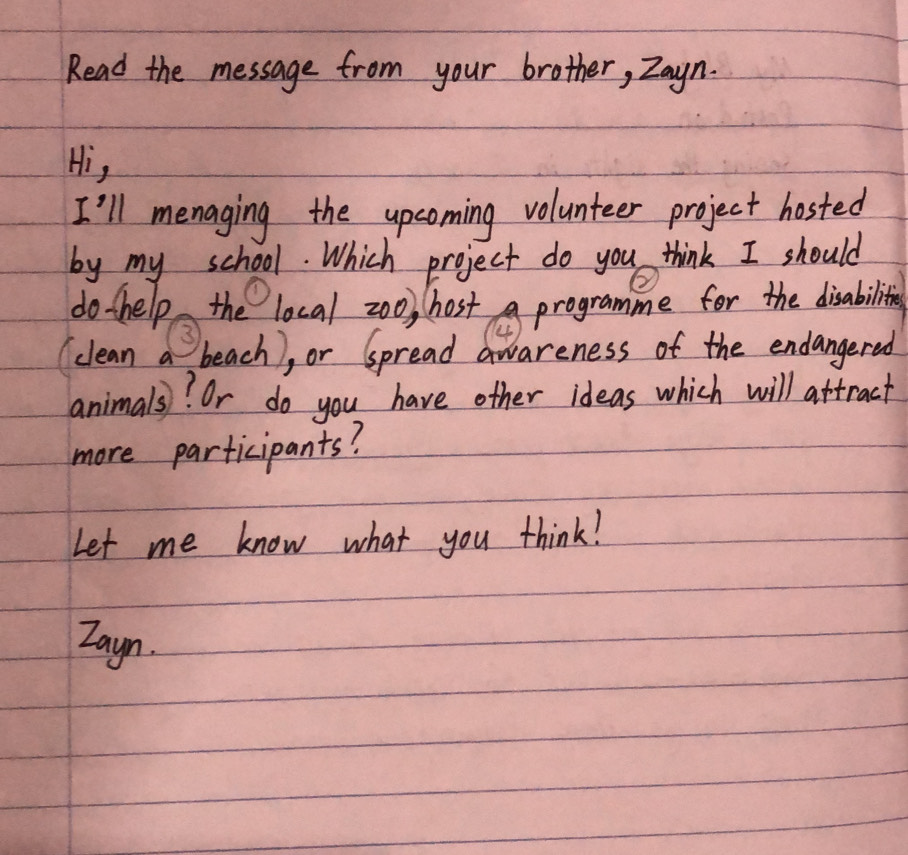 Read the message from your brother, Zayn.
Hi,
I'll menaging the upcoming volunteer project hosted
by my school. Which project do you think I should
do-(help the ① local zoo), (host a programme ② for the disabilities)
(clean a ③ beach), or (spread awareness ④ of the endangered
animals)? Or do you have other ideas which will attract
more participants?
Let me know what you think!
Zayn.